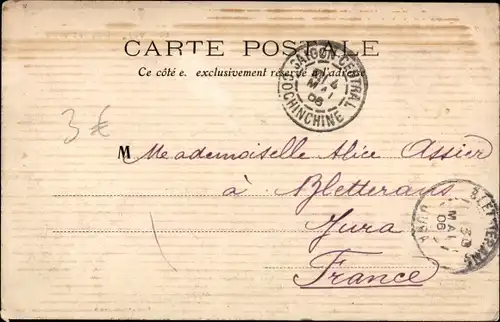 CARTE POSTALE
Ce côté e. exclusivement réservé à l'adresse
SAIGON-CENTRAL
4
MAI
06
COCHINCHINE
3 €
M Meademoiselle Alice Assier
à Bletterans
Jura
France
BLETTERANS
MAI
06
JURA